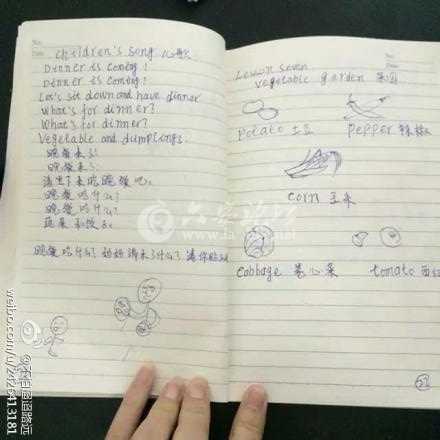 children's song 儿歌
Dinner is coming!
Dinner is coming!
Let's sit down and have dinner
What's for dinner?
What's for dinner?
Vegetable and dumplings.
晚餐来了!
晚餐来了!
请坐下来吃晚饭吧。
晚饭吃什么?
晚饭吃什么?
蔬菜和饺子。
晚饭吃什么?
Lesson seven
vegetable garden 菜园
potato 土豆
pepper 辣椒
corn 玉米
cabbage 卷心菜
tomato 西红
weibo.com/u/2026413181